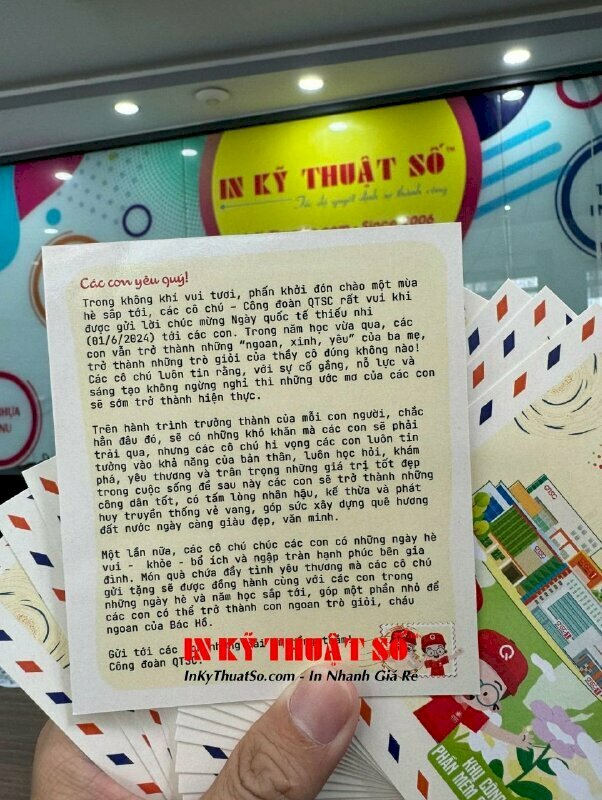 IN KỸ THUẬT SỐ™
Tốc độ quyết định sự thành công
Since 2006
Các con yêu quý!
Trong không khí vui tươi, phấn khởi đón chào một mùa
hè sắp tới, các cô chú - Công đoàn QTSC rất vui khi
được gửi lời chúc mừng Ngày quốc tế thiếu nhi
(01/6/2024) tới các con. Trong năm học vừa qua, các
con vẫn trở thành những "ngoan, xinh, yêu" của ba mẹ,
trở thành những trò giỏi của thầy cô đúng không nào!
Các cô chú luôn tin rằng, với sự cố gắng, nỗ lực và
sáng tạo không ngừng nghỉ thì những ước mơ của các con
sẽ sớm trở thành hiện thực.
Trên hành trình trưởng thành của mỗi con người, chắc
hẳn đâu đó, sẽ có những khó khăn mà các con sẽ phải
trải qua, nhưng các cô chú hi vọng các con luôn tin
tưởng vào khả năng của bản thân, luôn học hỏi, khám
phá, yêu thương và trân trọng những giá trị tốt đẹp
trong cuộc sống để sau này các con sẽ trở thành những
công dân tốt, có tấm lòng nhân hậu, kế thừa và phát
huy truyền thống vẻ vang, góp sức xây dựng quê hương
đất nước ngày càng giàu đẹp, văn minh.
Một lần nữa, các cô chú chúc các con có những ngày hè
vui - khỏe - bổ ích và ngập tràn hạnh phúc bên gia
đình. Món quà chứa đầy tình yêu thương mà các cô chú
gửi tặng sẽ được đồng hành cùng với các con trong
những ngày hè và năm học sắp tới, góp một phần nhỏ để
các con có thể trở thành con ngoan trò giỏi, cháu
ngoan của Bác Hồ.
Gửi tới các con những
Công đoàn QTSC.
IN KỸ THUẬT SỐ
InKyThuatSo.com - In Nhanh Giá Rẻ
QTSC
KHU CÔNG
PHẦN MỀM